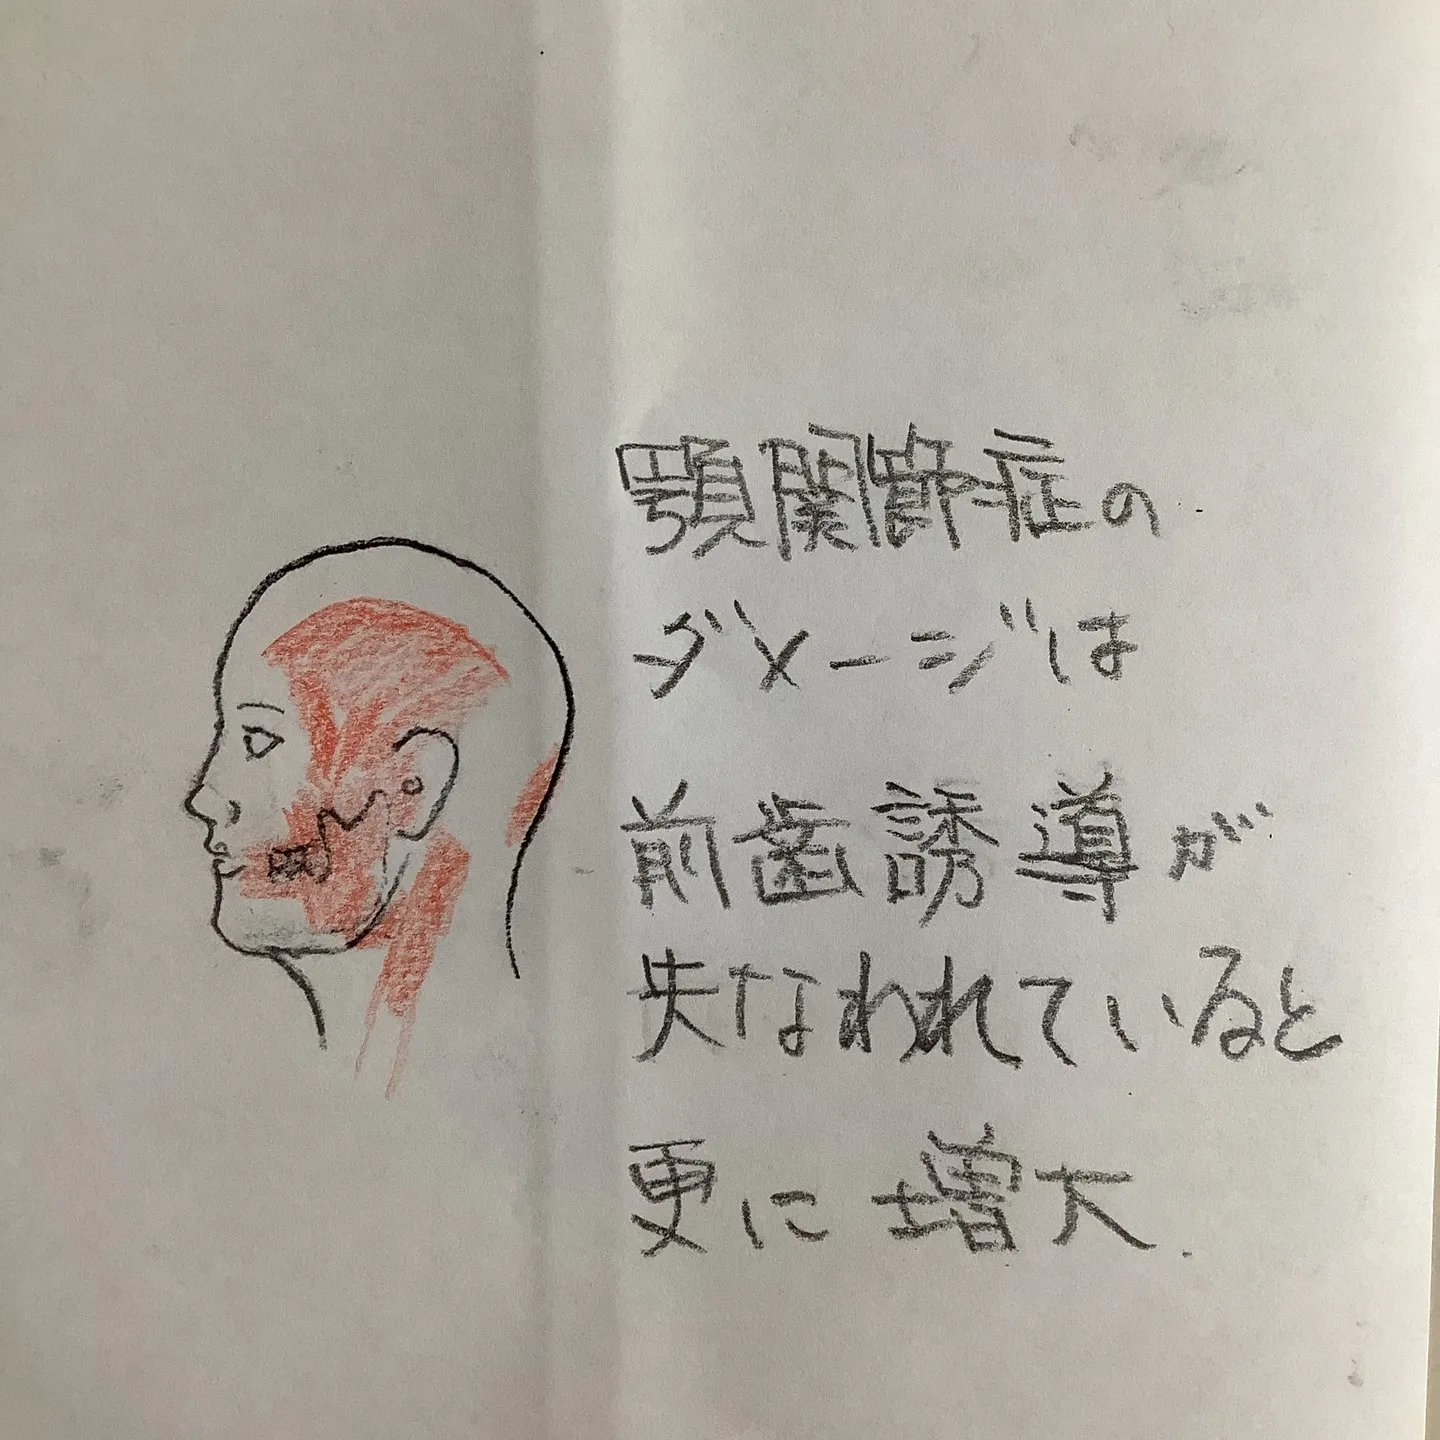 顎関節症の
ダメージは
前歯誘導が
失なわれていると
更に増大.